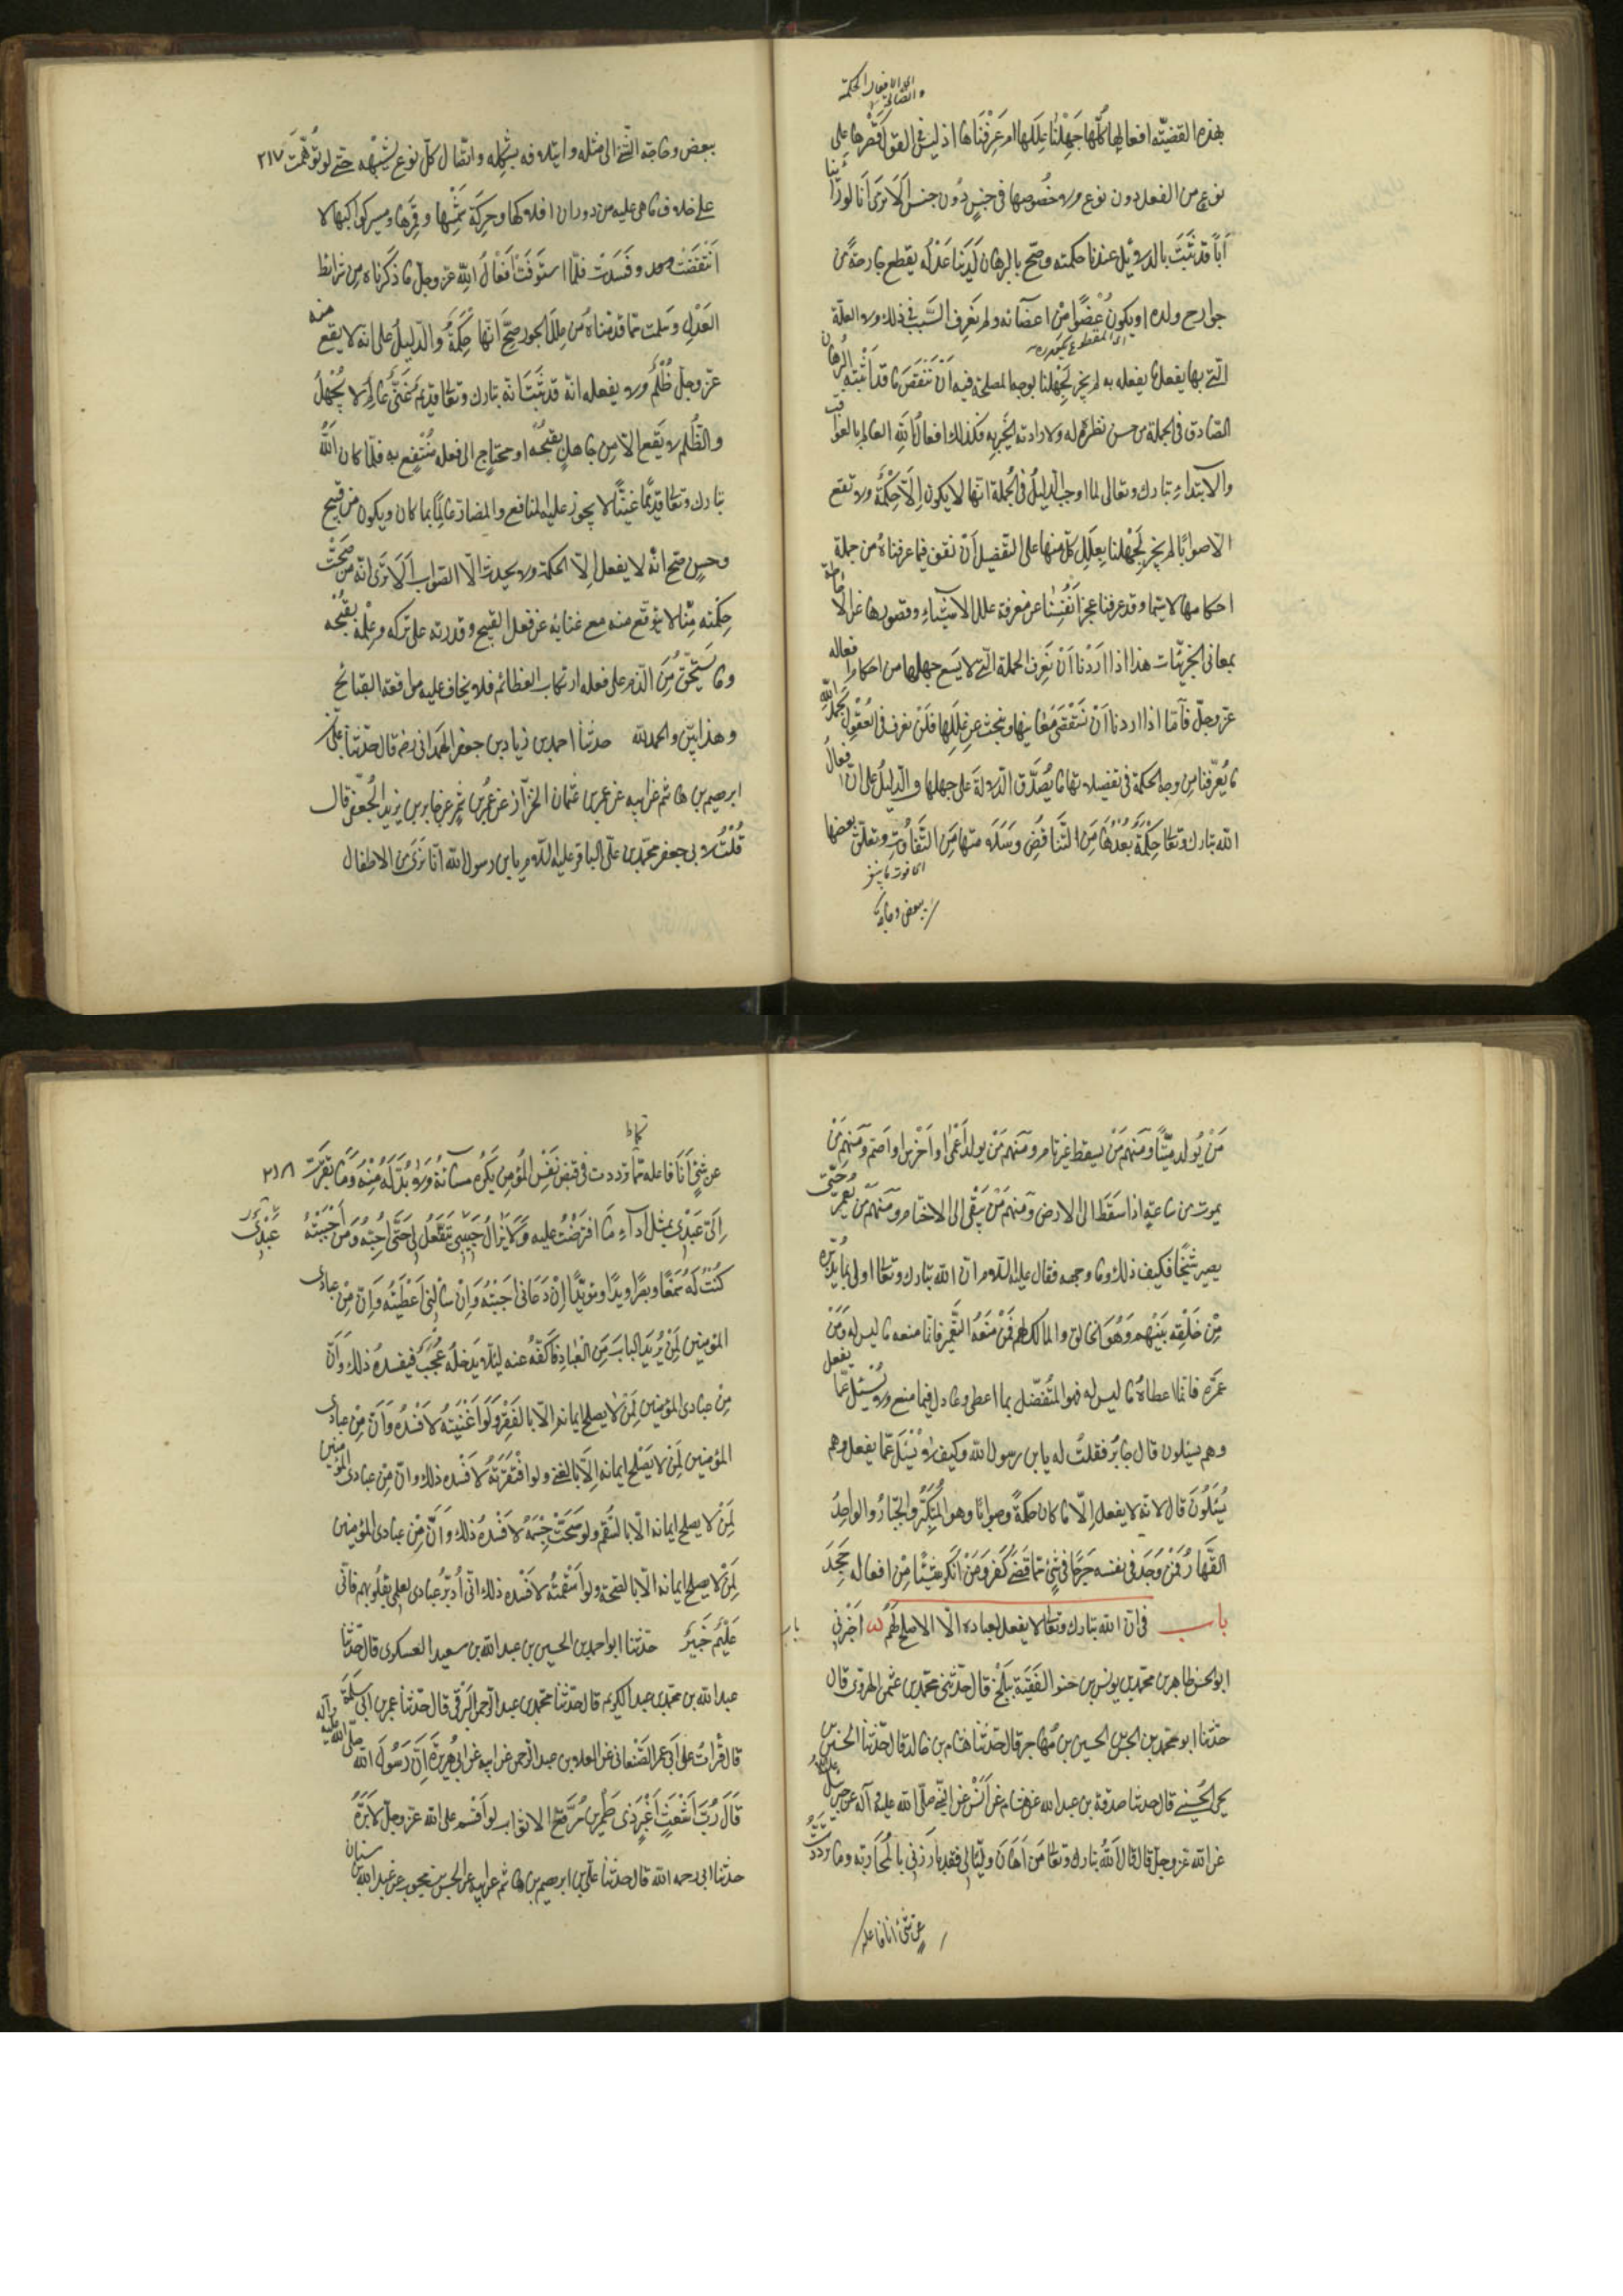 اى الافعال الحكمة
والصالح
بهذه القضيّة افعالها كلّها جَهِلْنا عِلَلَها ام عَرَفْناها اذ ليس فى العقول قَصْرها على
نوع من الفعل دون نوع ولا خُصُوصها فى جنس دُون جنس اَلا تَرَى اَنّا لو رَأَيْنا
اَبًا قد ثَبَتَ بالدلائل عندنا حكمته وصَحّ بالبرهان لَدَيْنا عَدْلُه يقطع جارحةً من
جوارح ولده او يكون عُضْوًا مِنْ اعضآئه ولم نَعْرِف السّبب فى ذلك ولا العلّة
اى المقطوع
الّتى بها يفعل ما يفعله به لم يَجُز لِجَهْلنا بوجه المصلحة فيه اَنْ نَنْقُضَ ما قد اَثْبَتَه البُرهان
الصّادق فى الجملة من حسن نظره له ولارادته الخَيْر به فكذلك افعالُ اللّه العالم بالعواقب
والابتداء تبارك وتعالى لما اوجب الدليلُ فى الجُملة انّها لا يكون اِلّا حِكْمَةً ولا تقع
الّا صوابًا لم يجز لِجَهْلنا بِعِلَلِ كلّ منها على التّفصيل اَنْ نقف فيما عرفناهُ من جملة
احكامها لا سيّما وقد عرفنا عجز اَنْفُسِنا عن معرفة علل الاشياء وقصورها عن الاحاطة
بمعانى الجزئيّات هذا اذا اَرَدْنا اَنْ نَعْرِف الجملة الّتى لا يسع جهلها من احكام افعاله
عزّ وجلّ فأمّا اذا اردنا اَنْ نَسْتَقْصى مَعانيها ونبحث عن عِلَلِها فَلَنْ نعدم فى العُقُول بحمد اللّه
ما يُعَرّفنا من وجه الحكمة فى تفصيلاتها ما يُصَدّق الدّلالَةَ على جملها والدّليلُ على انّ افعالَ
اللّه تبارك وتعالى حِكْمَةٌ بُعْدُها مِنَ التّناقُضِ وسَلامَتها مِنَ التّفاوُتِ وتعلّق بعضها
ببعض وحاجة
بعض وحاجة الشّئ الى مثله وائتلافه بشكله واتّصال كلّ نوع بشِبْهه حتّى لو تُوُهِّمَتْ ٢١٧
على خلاف ما هى عليه من دوران افلاكها وحركة شَمْسِها وقمرها ومسير كواكبها لا
اَنْتَقَضَتْ وفَسَدَتْ فلمّا استَوفَتْ اَفْعالُ اللّه عزّ وجلّ ما ذَكَرْناه مِن شرايط
العَدْلِ وسلمت ممّا قدّمناه مِن عِلَلِ الجور صَحّ اَنّها حِكْمَةٌ والدّليلُ على انّه لا يقع منه
عزّ وجلّ ظُلْمٌ ولا يفعله انّه قد ثَبَتَ انّه تبارك وتعالى قديمٌ غَنِىٌّ عالمٌ لا يُجْهَلُ
والظّلم لا يَقَع الّا مِن جاهلٍ بقبحه او محتاجٍ الى فعله مُنْتَفِع به فلمّا كان اللّهُ
تبارك وتعالى قديمًا غَنِيًّا لا يجوز عليه المنافع والمضارّ عالمًا بما كان ويكون من قبيح
وحسنٍ صَحّ انّه لا يفعل اِلّا الحكمة ولا يحدث الّا الصّواب اَلا تَرى انّه مَن صَحّتْ
حِكْمَته مِنّا لا يُتوقّع منه مع غنائه عن فعل القبيح وقدرته على تركه وعِلْمه بقُبْحه
وما يَسْتَحِقّ مِنَ الذّم على فعله ارتكاب العظائم فلا يخاف عليه مواقعة القبائح
وهذا بيّن والحمد للّه حدّثنا احمد بن زياد بن جعفر الهمدانى رض قال حدّثنا علىّ بن
ابرهيم بن هاشم عن ابيه عن عمر بن عثمان الخزّاز عن عمر بن شمر عن جابر بن يزيد الجُعْفى قال
قُلْتُ لابى جعفر محمّد بن علىّ الباقر عليه السّلام يا بن رسول اللّه انّا نَرَى مِن الاطفال
مَنْ يُولد ميّتًا ومنهم مَنْ يسقط غير تام ومنهم مَنْ يولد اَعْمى او اَخْرس او اَصمّ ومنهم مَنْ
يموت من ساعته اذا سَقَط الى الارض ومنهم مَنْ يَبْقى الى الاحتلام ومنهم مَنْ يُعَمَّر حَتّى
يصير شَيْخًا فكيف ذلك وما وجهه فقال عليه السّلام انّ اللّه تبارك وتعالى اولى بما يُدَبِّره
مِن خَلْقِه مِنْهم وهُوَ الخالق والمالك لهم فَمَنْ مَنَعَهُ التّعمير فانّما منعه ما ليس له ومَنْ
عمّره فانّما اعطاهُ ما ليس له فهو المُتَفَضّل بما اعطى وعادل فيما منع ولا يُسْئَل عمّا يفعل
وهم يسئلون قال جابرٌ فقلتُ له يا بن رسول اللّه وكيف لا يُسْئَل عمّا يفعل وهم
يُسْئَلُونَ قال لانّه لا يفعل اِلّا ما كان حكمةً وصوابًا وهو المُتكبّر والجبّارُ والواحِدُ
القَهّارُ فَمَنْ وَجَدَ فى نفسه حَرَجًا فى شئ ممّا قَضى كَفَر ومَنْ اَنْكَر شَيْئًا مِنْ افعاله جَحَدَ
باب فى انّ اللّه تبارك وتعالى لا يفعل بعباده الّا الاصلح لَهُم اَخْبَرنى
ابو الحسن طاهر بن محمّد بن يونس بن حيوة الفقيه ببَلْخ قال حدّثنى محمّد بن عثمن الهَرَوىّ قال
حدّثنا ابو محمّد بن الحسن الحسين بن مُهاجر قال حدّثنا هشام بن خالد قال حدّثنا الحسن بن
يحيى الحُسَنى قال حدثنا صدقة بن عبد اللّه عن هشام عن اَنَس عن النّبى صلّى اللّه عليه وآله عن جبرئيل
عن اللّه عزّ وجلّ قال قال اللّهُ تبارك وتعالى مَن اَهانَ وليًّا لى فقد بارَزَنى بالمُحارَبة وما تردّدتُ
عن شئ انا فاعله
عن شئٍ اَنَا فاعله ممّا تردّدت فى قبض نَفْسِ المُؤمن يَكْرَه مساءَتَهُ ولا بُدّ لَهُ مِنْهُ وما تَقَرّب ٢١٨
اِلَىّ عَبْدى بمثل اَدآءِ ما افْتَرَضْتُ عليه ولا يَزالُ عَبْدى يَتَنَفّلُ لى حَتّى اُحِبّه ومَنْ اَحْبَبْتُهُ
كُنْتُ لَهُ سَمْعًا وبصرًا ويدًا ومؤيّدًا اِنْ دَعانى اَجَبْتُهُ واِنْ سَألَنى اَعْطَيْتُه واِنّ مِنْ عبادى
المؤمنين لَمَنْ يُريدُ البابَ مِنَ العبادة فَاَكُفّهُ عنه ليلّا يدخله عُجْبٌ فيفسدُه ذلك واِنّ
مِنْ عبادى المؤمنين لَمَنْ لا يصلح ايمانه الّا بالفَقْر ولَو اَغْنَيْتُه لاَفْسَدَه واِنّ مِنْ عبادى
المؤمنين لَمَنْ لا يَصْلح ايمانه اِلّا بالغنى ولو اَفْقَرْتُهُ لاَفْسَده ذلك وانّ مِن عبادى المؤمنين
لَمَنْ لا يصلح ايمانه الّا بالسُّقم ولو صَحّحتُ جِسْمَهُ لاَفْسَدَهُ ذلك واَنّ مِنْ عبادى المؤمنين
لَمَنْ لا يصلح ايمانه الّا بالصّحّة ولو اَسْقَمْتُه لاَفْسَده ذلك انّى اُدَبّرُ عبادى بعِلْمى بقُلُوبهم فانّى
عَلِيْمٌ خَبِيْرٌ حدّثنا ابو احمد بن الحسين بن عبد اللّه بن سعيد العسكرى قال حدّثنا
عبد اللّه بن محمّد بن عبد الكريم قال حدّثنا محمّد بن عبد الرّحمن البَرْقى قال حدّثنا عمر بن ابى سَلَمَة
قال قَرأتُ على اَبى عمر الصَّنْعانى عن العلاء بن عبد الرّحمن عن ابيه عن ابى هُرَيْرَةَ اَنّ رَسُولَ اللّه صلّى اللّه عليه وآله
قَالَ رُبّ اَشْعَثَ اَغْبَرَ ذى طِمْرين مُدَفّعٍ بالابواب لو اَقْسَم على اللّه عزّ وجلّ لاَبَرّهُ
حدّثنا ابى رحمه اللّه قال حدّثنا علىّ بن ابرهيم بن هاشم عن ابيه عن الحسن بن محبوب عن عبد اللّه بن سنان